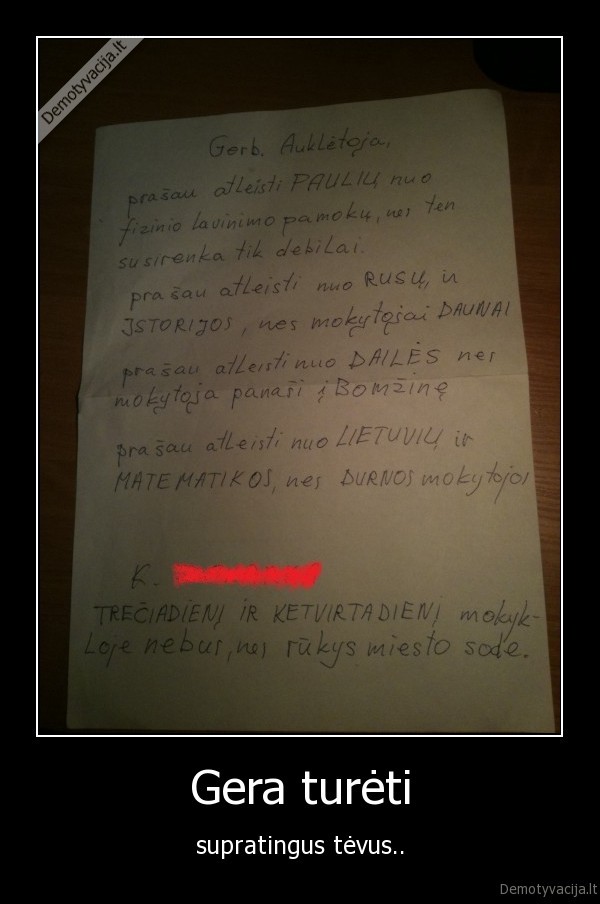 Demotyvacija.lt
Gerb. Auklėtoja,
prašau atleisti PAULIŲ nuo
fizinio lavinimo pamokų, nes ten
susirenka tik debilai.
prašau atleisti nuo RUSŲ, ir
ĮSTORIJOS, nes mokytojai DAUNAI
prašau atleisti nuo DAILĖS nes
mokytoja panaši į Bomžinę
prašau atleisti nuo LIETUVIŲ ir
MATEMATIKOS, nes DURNOS mokytojos
K.
TREČIADIENĮ IR KETVIRTADIENĮ mokyk-
Loje nebus, nes rūkys miesto sode.
Gera turėti
supratingus tėvus..
Demotyvacija.lt